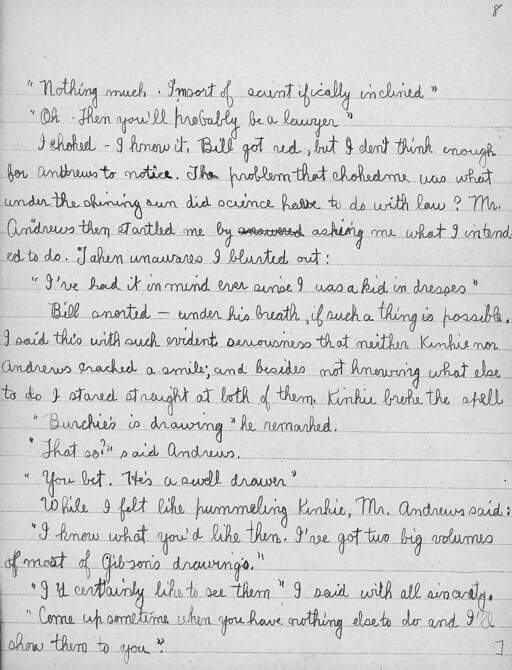 8
"Nothing much. I'm sort of scientifically inclined"
"Oh. Then you'll probably be a lawyer"
I choked - I know it. Bill got red, but I don't think enough
for Andrews to notice. The problem that choked me was what
under the shining sun did science have to do with law? Mr.
Andrews then startled me by answered asking me what I intend-
ed to do. Taken unawares I blurted out:
"I've had it in mind ever since I was a kid in dresses"
Bill snorted - under his breath, if such a thing is possible.
I said this with such evident seriousness that neither Kinkie nor
Andrews cracked a smile; and besides not knowing what else
to do I stared straight at both of them. Kinkie broke the spell
"Burchie's is drawing" he remarked.
"That so?" said Andrews.
"You bet. He's a swell drawer"
While I felt like pummeling Kinkie, Mr. Andrews said:
"I know what you'd like then. I've got two big volumes
of most of Gibson's drawings."
"I'd certainly like to see them" I said with all sincerity.
"Come up sometime when you have nothing else to do and I'll
show them to you".